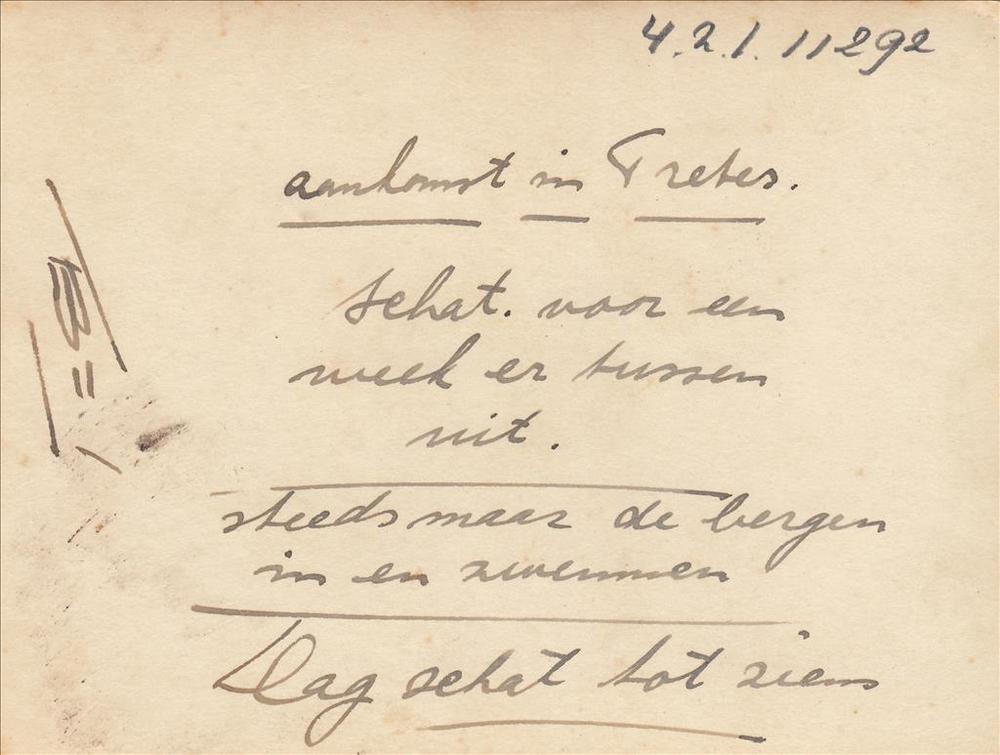 4.2.1.11292
aankomst in Tretes.
schat. voor een
week er tussen
uit.
steeds maar de bergen
in en zwemmen
Dag schat tot ziens